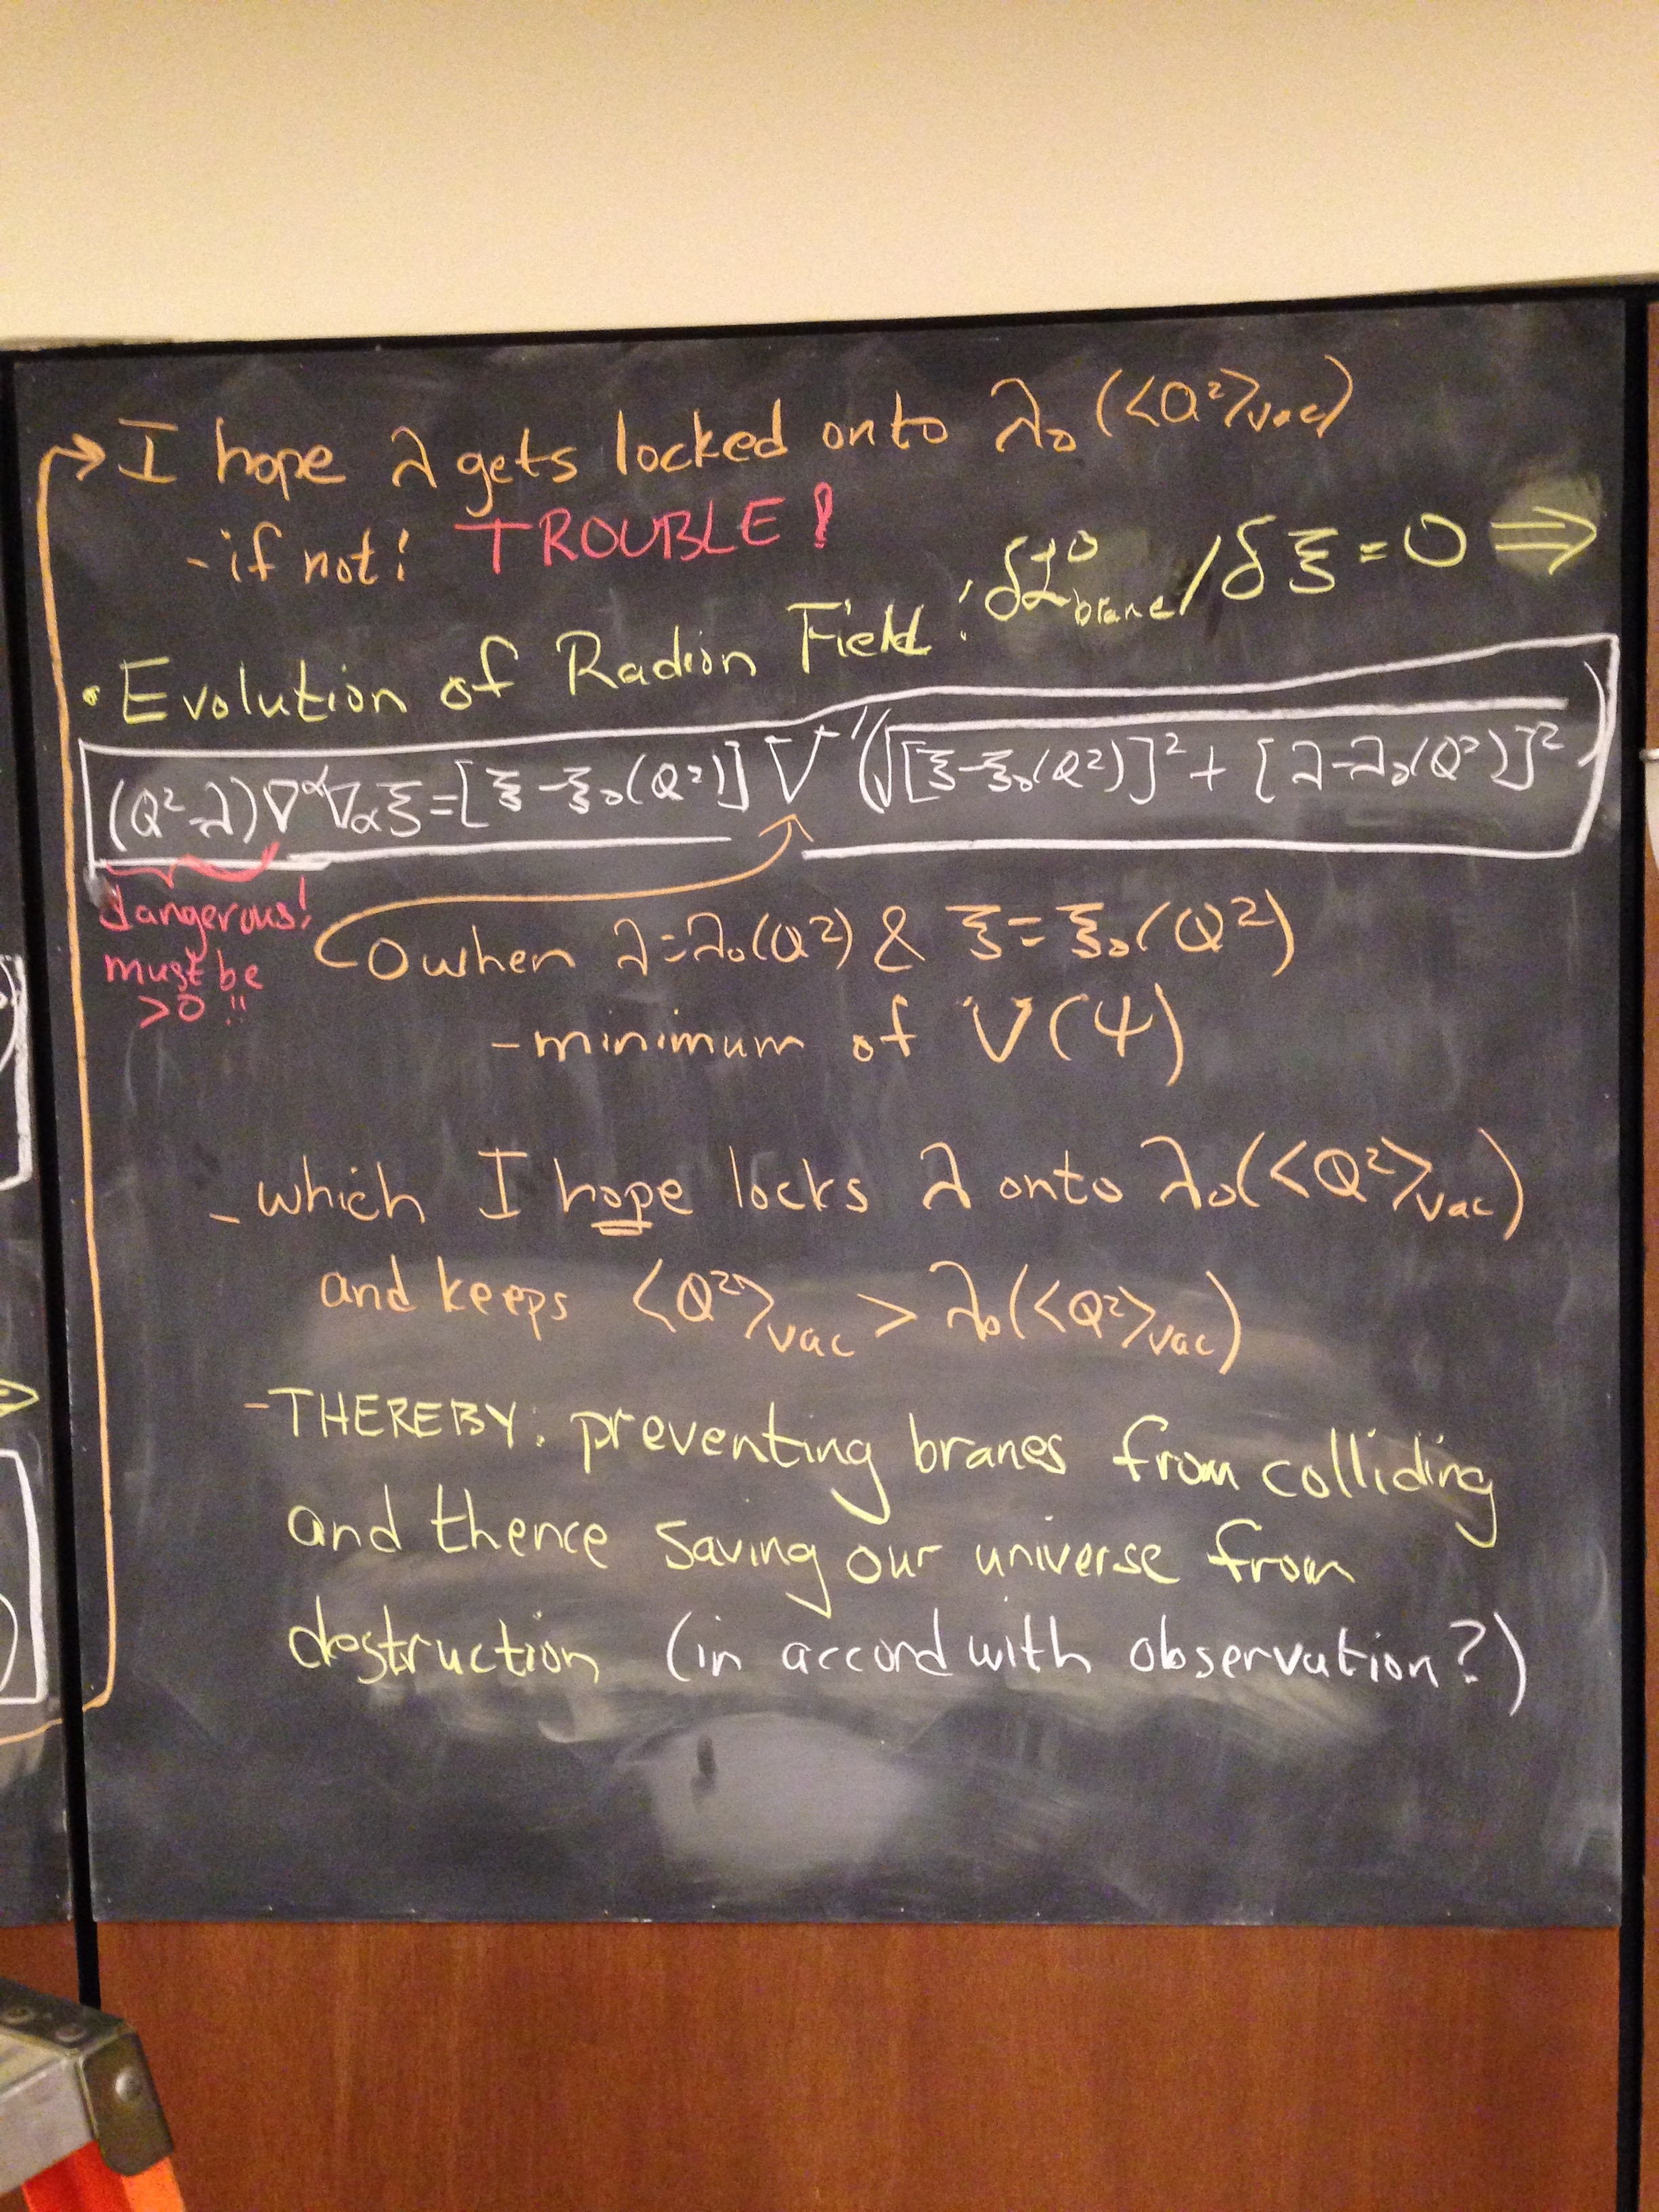 → I hope λ gets locked onto λ₀(<Q²>vac)
- if not! TROUBLE!
• Evolution of Radion Field: δℒ⁰brane/δξ = 0 ⇒
(Q²-λ)∇^α∇_αξ = [ξ-ξ₀(Q²)] V'(√([ξ-ξ₀(Q²)]² + [λ-λ₀(Q²)]²))
dangerous!
must be
>0!!
0 when λ=λ₀(Q²) & ξ=ξ₀(Q²)
- minimum of V(ψ)
- which I hope locks λ onto λ₀(<Q²>vac)
and keeps <Q²>vac > λ₀(<Q²>vac)
- THEREBY: preventing branes from colliding
and thence saving our universe from
destruction (in accord with observation?)